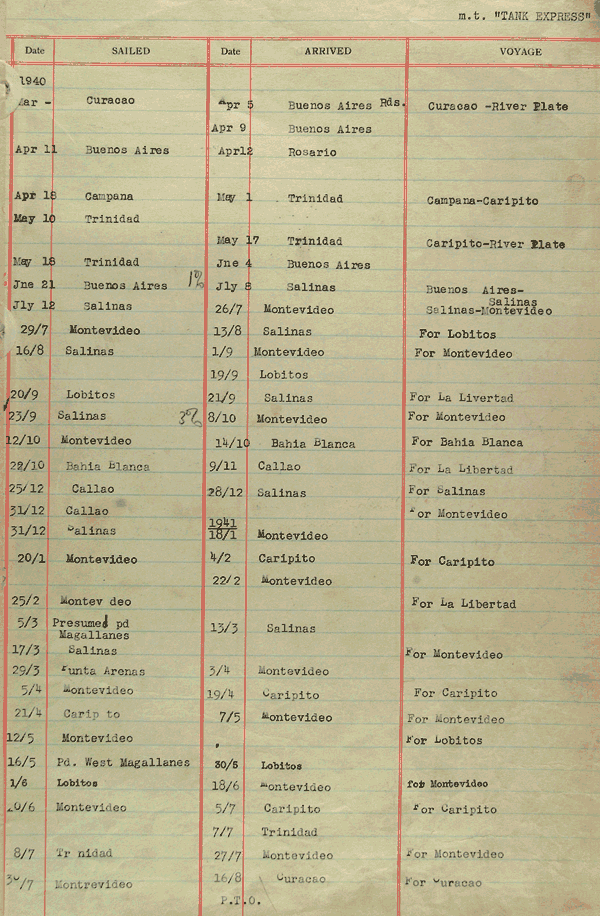 m.t. "TANK EXPRESS"
Date SAILED Date ARRIVED VOYAGE
1940
Mar - Curacao Apr 5 Buenos Aires Rds. Curacao -River Plate
Apr 9 Buenos Aires
Apr 11 Buenos Aires Apr12 Rosario
Apr 18 Campana May 1 Trinidad Campana-Caripito
May 10 Trinidad
May 17 Trinidad Caripito-River Plate
May 18 Trinidad Jne 4 Buenos Aires
Jne 21 Buenos Aires 1% Jly 8 Salinas Buenos Aires-
Salinas
Jly 12 Salinas 26/7 Montevideo Salinas-Montevideo
29/7 Montevideo 13/8 Salinas For Lobitos
16/8 Salinas 1/9 Montevideo For Montevideo
19/9 Lobitos
20/9 Lobitos 21/9 Salinas For La Livertad
23/9 Salinas 3% 8/10 Montevideo For Montevideo
12/10 Montevideo 14/10 Bahia Blanca For Bahia Blanca
22/10 Bahia Blanca 9/11 Callao For La Libertad
25/12 Callao 28/12 Salinas For Salinas
31/12 Callao For Montevideo
1941
31/12 Salinas 18/1 Montevideo
20/1 Montevideo 4/2 Caripito For Caripito
22/2 Montevideo
25/2 Montev deo For La Libertad
5/3 Presumed pd
Magallanes 13/3 Salinas
17/3 Salinas For Montevideo
29/3 Punta Arenas 3/4 Montevideo
5/4 Montevideo 19/4 Caripito For Caripito
21/4 Carip to 7/5 Montevideo For Montevideo
12/5 Montevideo For Lobitos
16/5 Pd. West Magallanes 30/5 Lobitos
1/6 Lobitos 18/6 Montevideo for Montevideo
20/6 Montevideo 5/7 Caripito For Caripito
7/7 Trinidad
8/7 Tr nidad 27/7 Montevideo For Montevideo
30/7 Montrevideo 16/8 Curacao For Curacao
P.T.O.